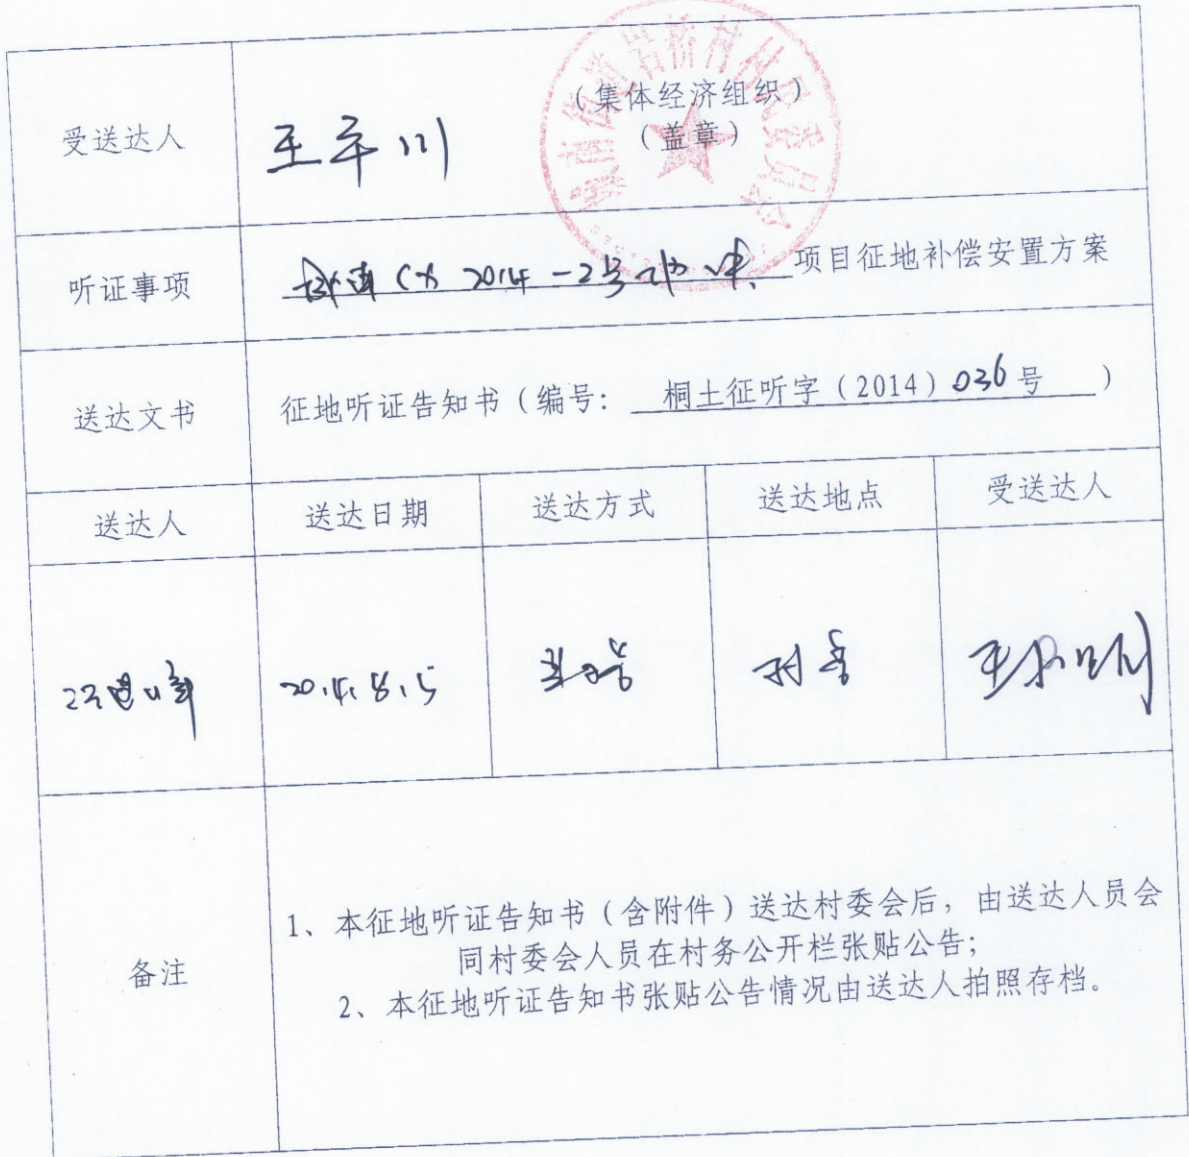 （集体经济组织）
受送达人
（盖章）
听证事项 2014-2号 项目征地补偿安置方案
送达文书 征地听证告知书（编号： 桐土征听字（2014）036号 ）
送达人 送达日期 送达方式 送达地点 受送达人
2014.8.15 村委
备注
1、本征地听证告知书（含附件）送达村委会后，由送达人员会
同村委会人员在村务公开栏张贴公告；
2、本征地听证告知书张贴公告情况由送达人拍照存档。